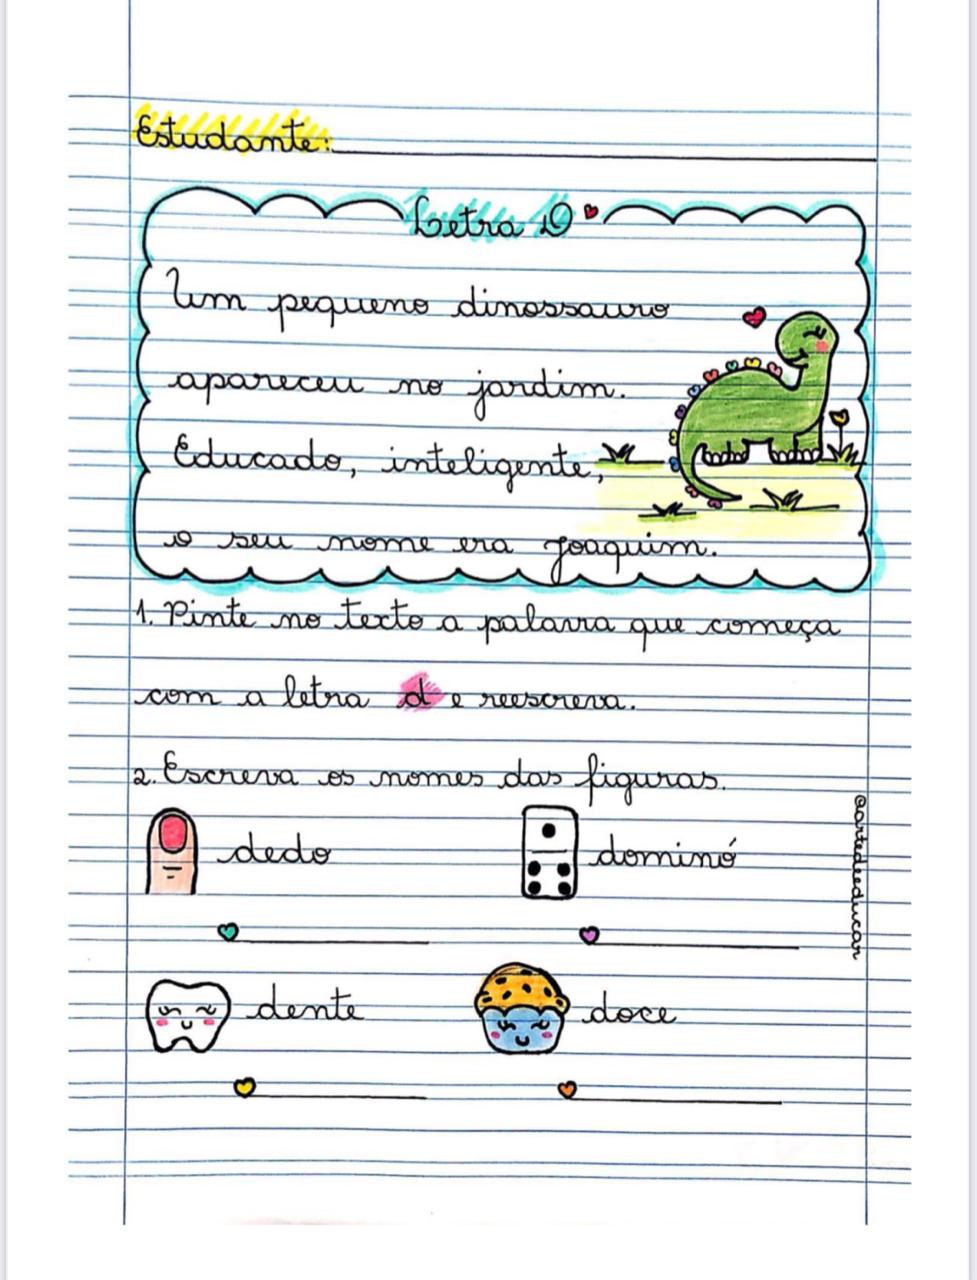 Estudante:
Letra D
Um pequeno dinossauro
apareceu no jardim.
Educado, inteligente,
o seu nome era Joaquim.
1. Pinte no texto a palavra que começa
com a letra d e reescreva.
2. Escreva os nomes das figuras.
dedo
dominó
dente
doce
@artedeeducar